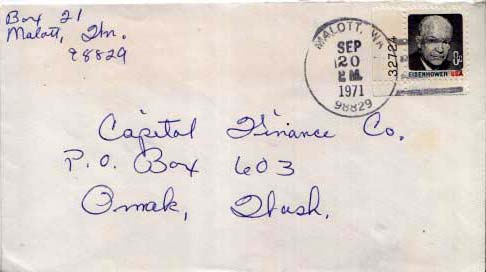 Box 21
Malott, Wn.
98829
MALOTT, WA
SEP
20
PM
1971
98829
32724
8¢
EISENHOWER USA
Capital Finance Co.
P.O. Box 603
Omak, Wash.